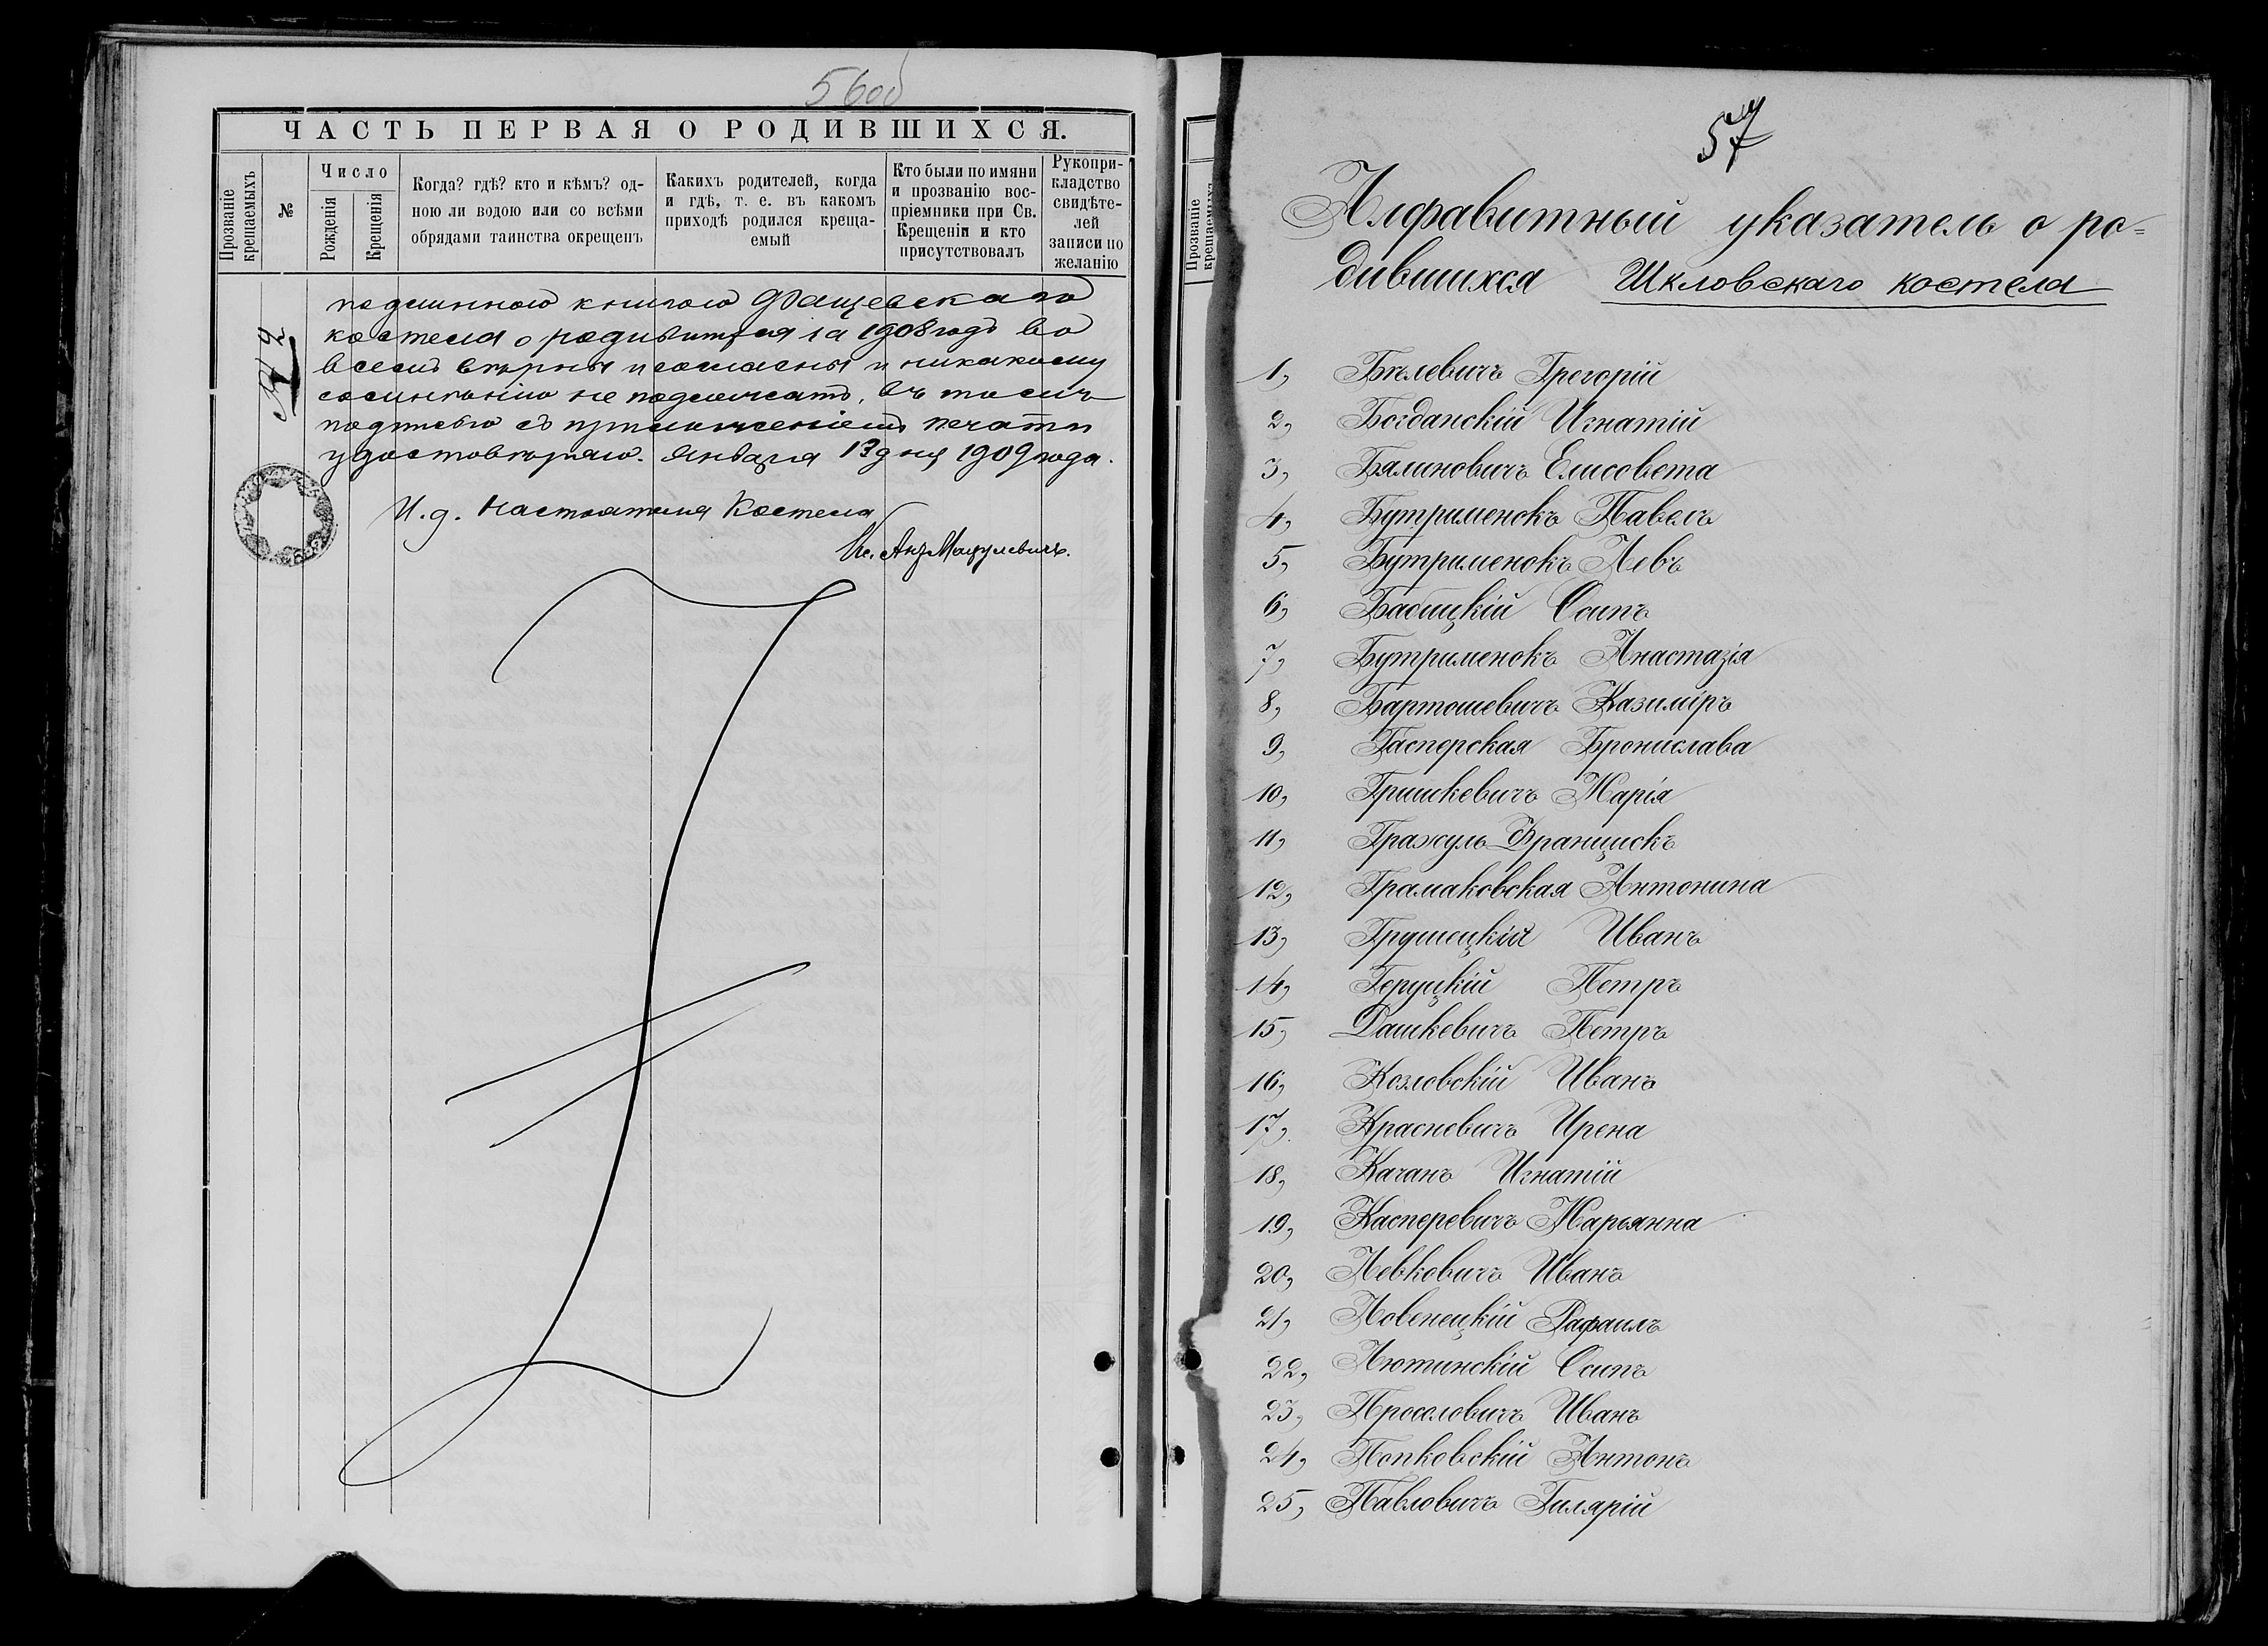 56об
ЧАСТЬ ПЕРВАЯ О РОДИВШИХСЯ.
Прозваніе крещаемыхъ
№
Число
Рожденія
Крещенія
Когда? гдѣ? кто и кѣмъ? од-
ною ли водою или со всѣми
обрядами таинства окрещенъ
Какихъ родителей, когда
и гдѣ, т. е. въ какомъ
приходѣ родился креща-
емый
Кто были по имяни
и прозванію вос-
пріемники при Св.
Крещеніи и кто
присутствовалъ
Рукопри-
кладство
свидѣте-
лей
записи по
желанію
подлинною книгою Фащевскаго
костела о родившихся за 1908 годъ во
всемъ вѣрны и согласны и никакому
сомнѣнію не подлежатъ, въ томъ
подписью съ приложеніемъ печати
удостовѣряю. Января 13 дня 1909 года.
И.д. Настоятеля Костела
Кс. Мацулевичъ.
Прозваніе
крещаемыхъ
57
Алфавитный указатель о ро=
дившихся Шкловскаго костела
1, Бѣлевичъ Грегорій
2, Богданскій Игнатій
3, Бялиновичъ Елисовета
4, Бутрименокъ Павелъ
5, Бутрименокъ Левъ
6, Бабицкій Осипъ
7, Бутрименокъ Анастазія
8, Бартошевичъ Казиміръ
9, Гасперская Брониславa
10, Гришкевичъ Марія
11, Гражуль Францискъ
12, Грамаковская Антонина
13, Грушецкій Иванъ
14, Геруцкій Петръ
15, Дашкевичъ Петръ
16, Козловскій Иванъ
17, Красневичъ Ирена
18, Качанъ Игнатій
19, Касперевичъ Марьянна
20, Левковичъ Иванъ
21, Ловенецкій Рафаилъ
22, Лютинскій Осипъ
23, Просоловичъ Иванъ
24, Попковскій Антонъ
25, Павловичъ Гилярій